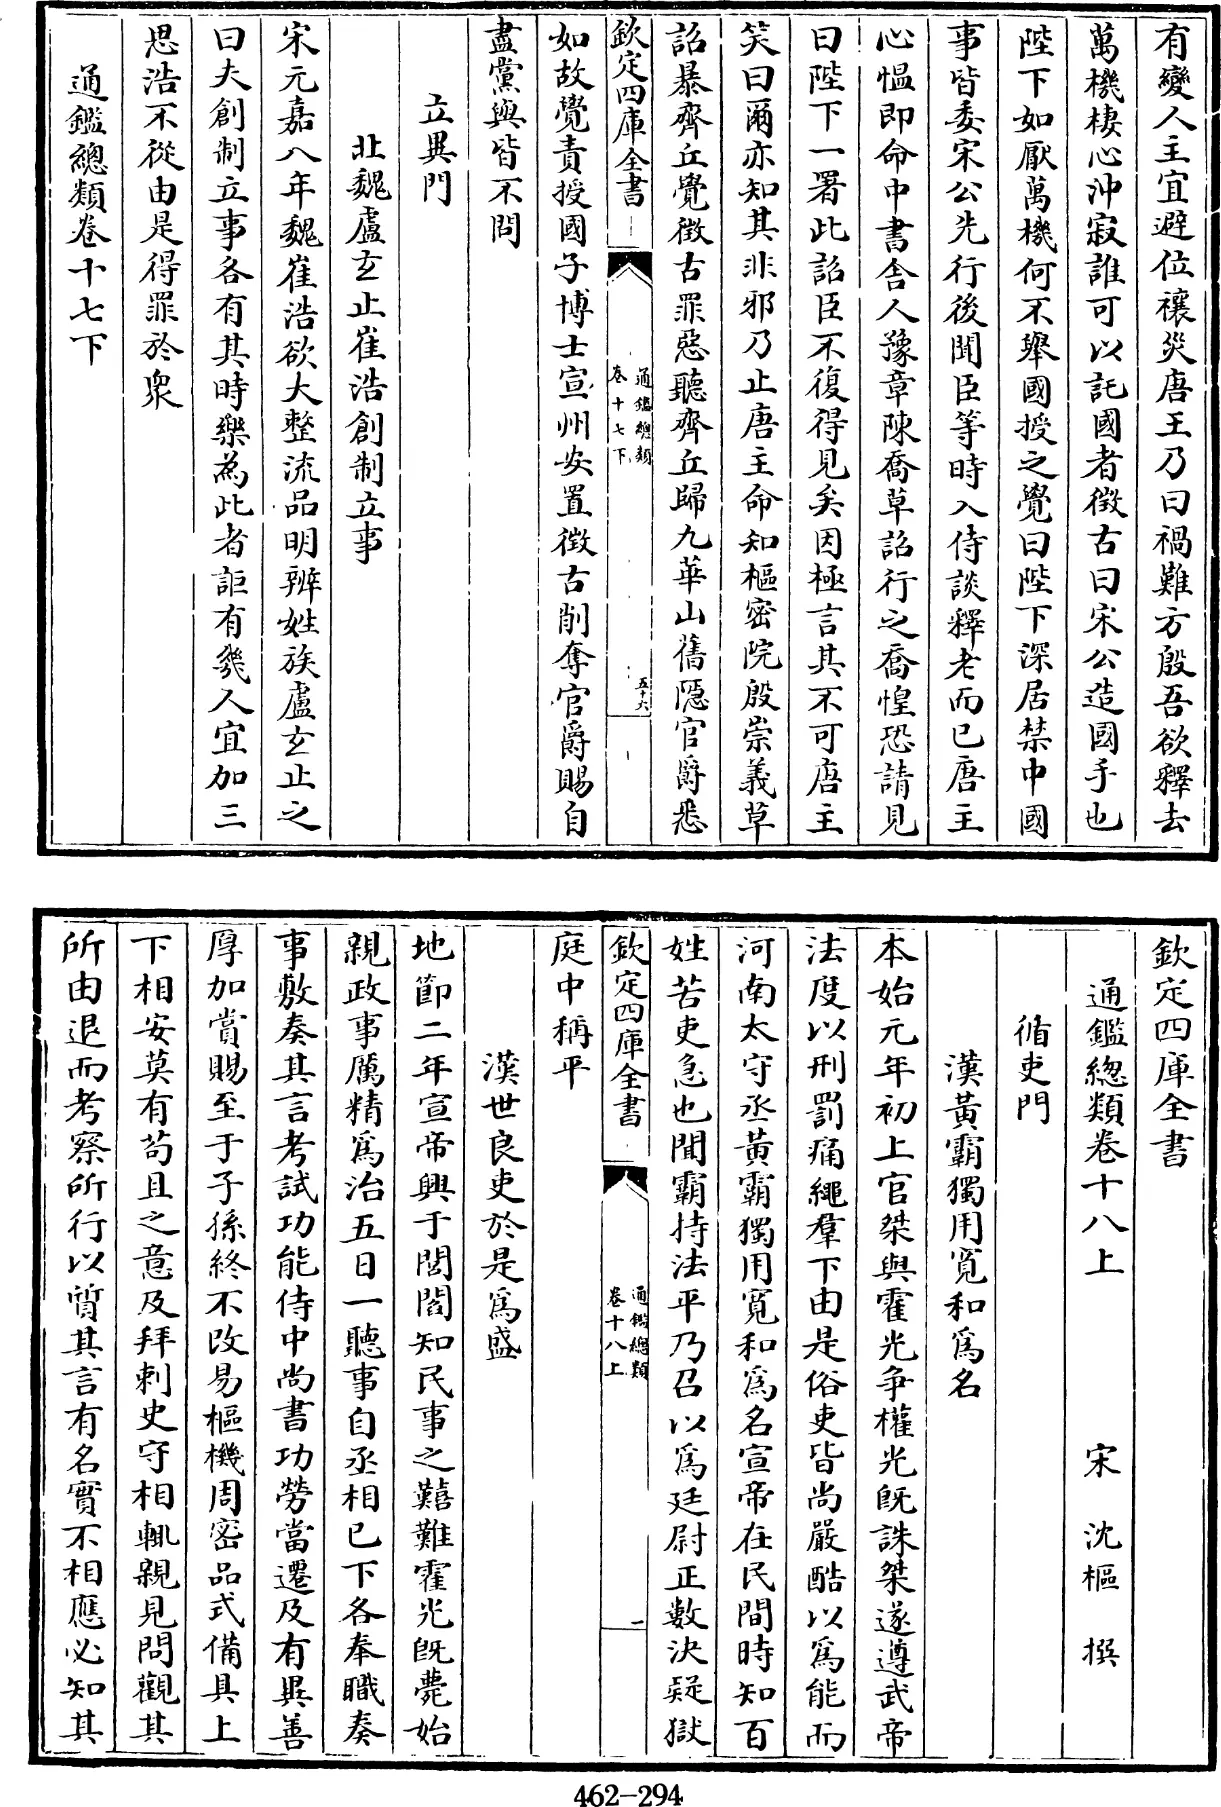 有變人主宜避位禳災唐王乃曰禍難方殷吾欲釋去
萬機棲心沖寂誰可以託國者徴古曰宋公造國手也
陛下如厭萬機何不舉國授之覺曰陛下深居禁中國
事皆委宋公先行後聞臣等時入侍談釋老而已唐主
心愠即命中書舍人豫章陳喬草詔行之喬惶恐請見
曰陛下一署此詔臣不復得見矣因極言其不可唐主
笑曰爾亦知其非邪乃止唐主命知樞密院殷崇義草
詔暴齊丘覺徴古罪惡聽齊丘歸九華山舊隱官爵悉
欽定四庫全書
通鑑總類
卷十七下
五十六
如故覺責授國子博士宣州安置徴古削奪官爵賜自
盡黨與皆不問
立異門
北魏盧玄止崔浩創制立事
宋元嘉八年魏崔浩欲大整流品明辨姓族盧玄止之
曰夫創制立事各有其時樂為此者詎有幾人宜加三
思浩不從由是得罪於衆
通鑑總類卷十七下
欽定四庫全書
通鑑總類卷十八上 宋 沈樞 撰
循吏門
漢黃霸獨用寛和爲名
本始元年初上官桀與霍光争權光既誅桀遂遵武帝
法度以刑罰痛繩羣下由是俗吏皆尚嚴酷以爲能而
河南太守丞黃霸獨用寛和爲名宣帝在民間時知百
姓苦吏急也聞霸持法平乃召以爲廷尉正數決疑獄
欽定四庫全書
通鑑總類
卷十八上
一
庭中稱平
漢世良吏於是爲盛
地節二年宣帝興于閭閻知民事之囏難霍光既薨始
親政事厲精爲治五日一聽事自丞相已下各奉職奏
事敷奏其言考試功能侍中尚書功勞當遷及有異善
厚加賞賜至于子孫終不改易樞機周密品式備具上
下相安莫有苟且之意及拜刺史守相輒親見問觀其
所由退而考察所行以質其言有名實不相應必知其
462-294